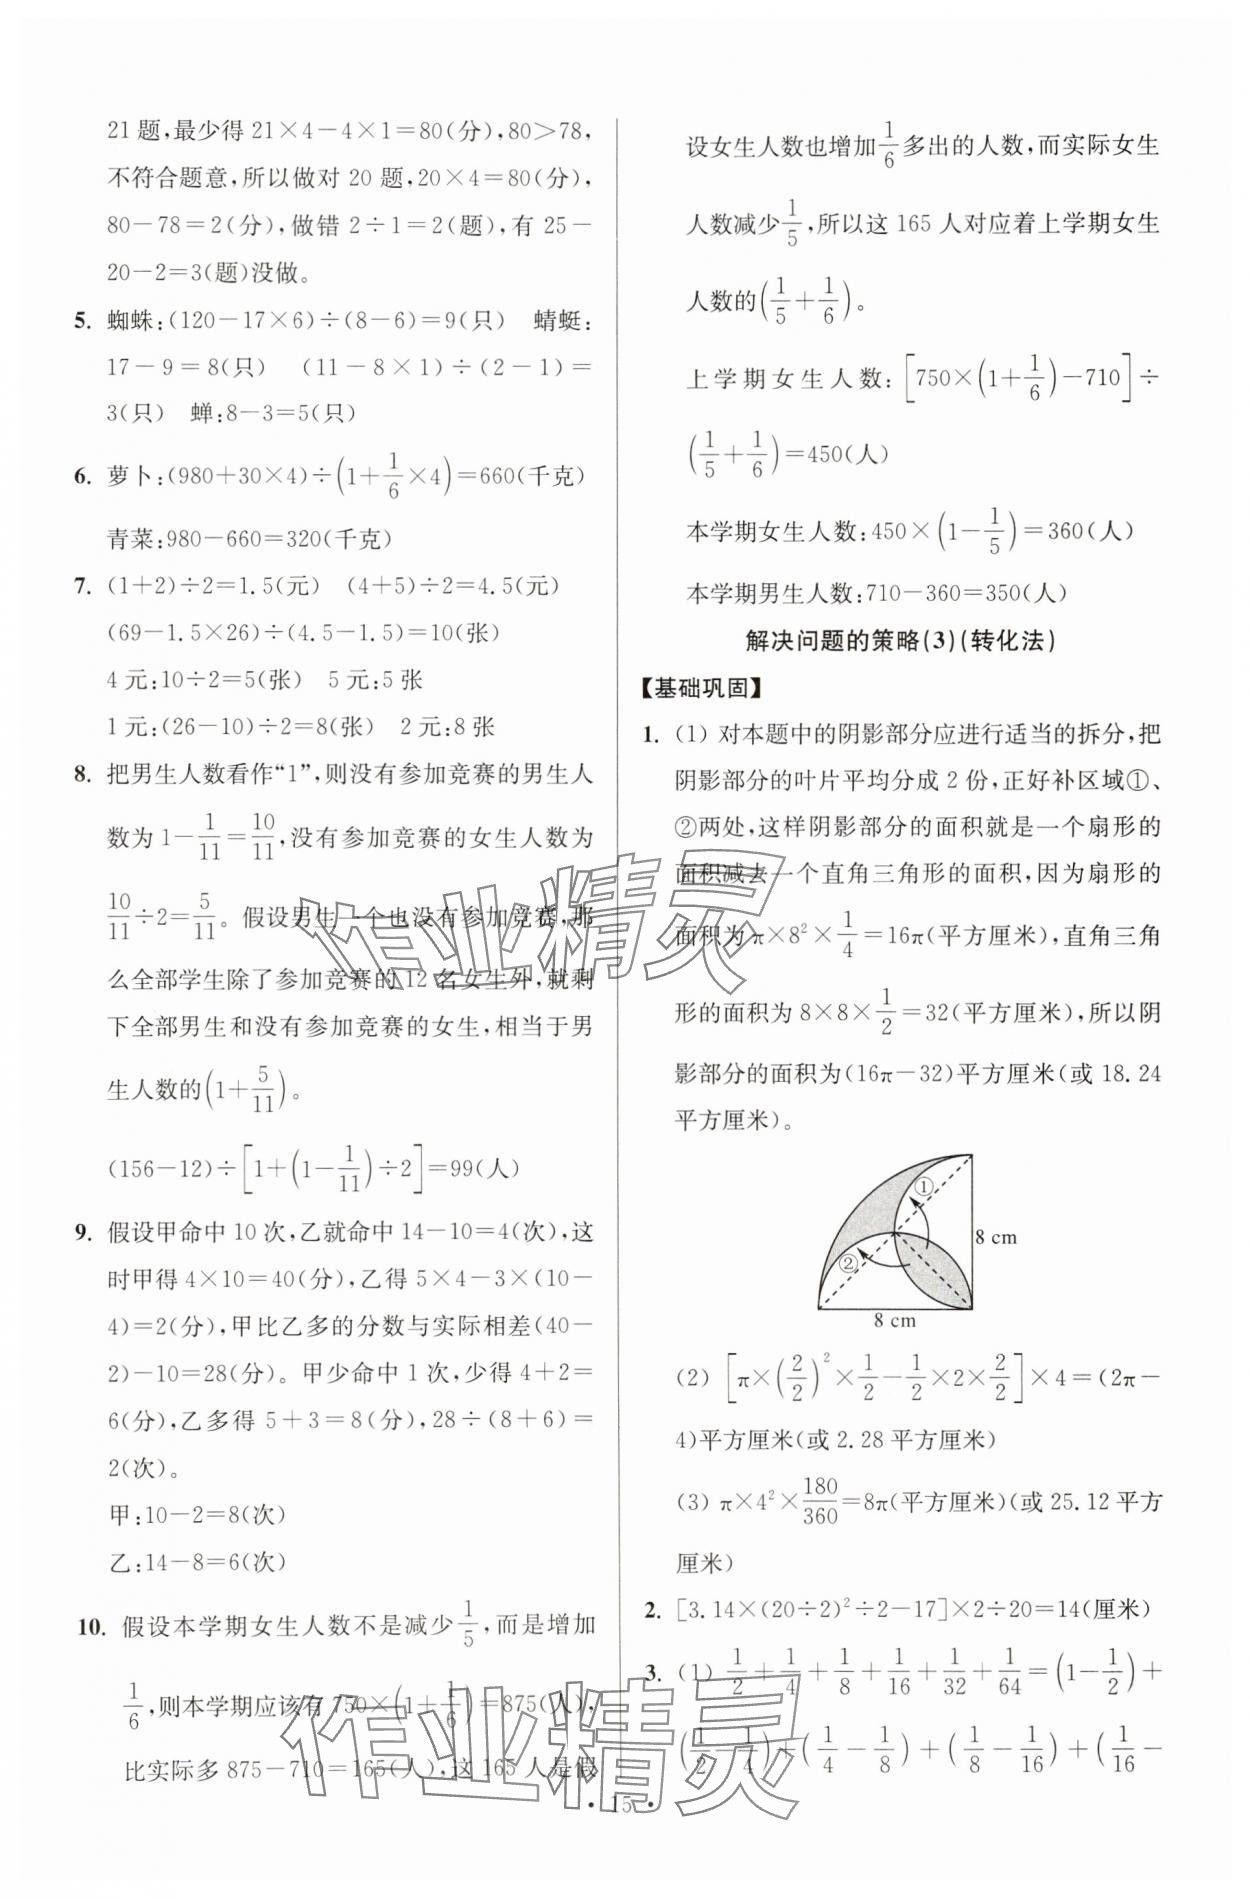 21 题,最少得 21×4－4×1＝80(分),80＞78,
不符合题意,所以做对 20 题,20×4＝80(分),
80－78＝2(分),做错 2÷1＝2(题),有 25－
20－2＝3(题)没做。
5. 蜘蛛:(120－17×6)÷(8－6)＝9(只)　蜻蜓:
17－9＝8(只)　(11－8×1)÷(2－1)＝
3(只)　蝉:8－3＝5(只)
6. 萝卜:(980＋30×4)÷(1＋1/6×4)＝660(千克)
青菜:980－660＝320(千克)
7. (1＋2)÷2＝1.5(元)　(4＋5)÷2＝4.5(元)
(69－1.5×26)÷(4.5－1.5)＝10(张)
4 元:10÷2＝5(张)　5 元:5 张
1 元:(26－10)÷2＝8(张)　2 元:8 张
8. 把男生人数看作“1”,则没有参加竞赛的男生人
数为 1－1/11＝10/11,没有参加竞赛的女生人数为
10/11÷2＝5/11。假设男生一个也没有参加竞赛,那
么全部学生除了参加竞赛的 12 名女生外,就剩
下全部男生和没有参加竞赛的女生,相当于男
生人数的(1＋5/11)。
(156－12)÷[1＋(1－1/11)÷2]＝99(人)
9. 假设甲命中 10 次,乙就命中 14－10＝4(次),这
时甲得 4×10＝40(分),乙得 5×4－3×(10－
4)＝2(分),甲比乙多的分数与实际相差(40－
2)－10＝28(分)。甲少命中 1 次,少得 4＋2＝
6(分),乙多得 5＋3＝8(分),28÷(8＋6)＝
2(次)。
甲:10－2＝8(次)
乙:14－8＝6(次)
10. 假设本学期女生人数不是减少1/5,而是增加
1/6,则本学期应该有 750×(1＋1/6)＝875(人),
比实际多 875－710＝165(人),这 165 人是假
设女生人数也增加1/6多出的人数,而实际女生
人数减少1/5,所以这 165 人对应着上学期女生
人数的(1/5＋1/6)。
上学期女生人数:[750×(1＋1/6)－710]÷
(1/5＋1/6)＝450(人)
本学期女生人数:450×(1－1/5)＝360(人)
本学期男生人数:710－360＝350(人)
解决问题的策略(3)(转化法)
【基础巩固】
1. (1) 对本题中的阴影部分应进行适当的拆分,把
阴影部分的叶片平均分成 2 份,正好补区域①、
②两处,这样阴影部分的面积就是一个扇形的
面积减去一个直角三角形的面积,因为扇形的
面积为 π×8²×1/4＝16π(平方厘米),直角三角
形的面积为 8×8×1/2＝32(平方厘米),所以阴
影部分的面积为(16π－32)平方厘米(或 18.24
平方厘米)。
①
②
8 cm
8 cm
(2) [π×(2/2)²×1/2－1/2×2×2/2]×4＝(2π－
4)平方厘米(或 2.28 平方厘米)
(3) π×4²×180/360＝8π(平方厘米)(或 25.12 平方
厘米)
2. [3.14×(20÷2)²÷2－17]×2÷20＝14(厘米)
3. (1) 1/2＋1/4＋1/8＋1/16＋1/32＋1/64＝(1－1/2)＋
(1/2－1/4)＋(1/4－1/8)＋(1/8－1/16)＋(1/16－
• 15 •
作业精灵
作业精灵